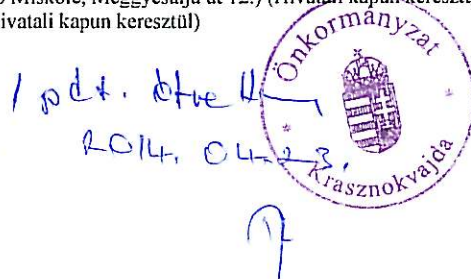 Miskolc, Meggyesalja út 12.) (Hivatali kapun keresztül
ivatali kapun keresztül)
Önkormányzat
Krasznokvajda
1 pdt. átvettem
2014. 04. 23.